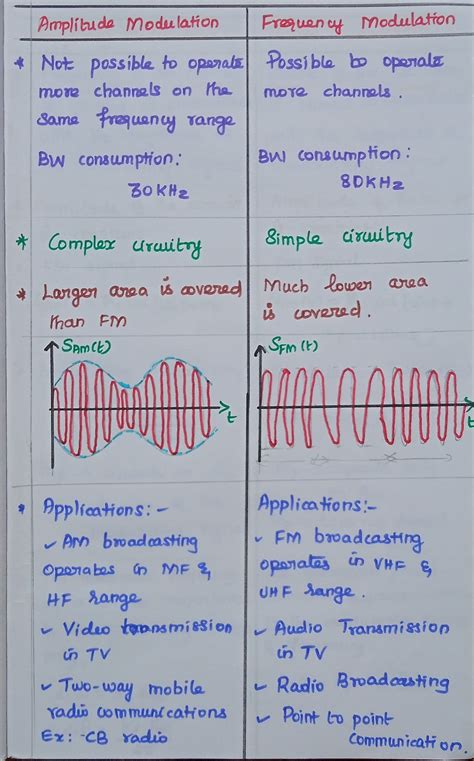 Amplitude Modulation
Frequency Modulation
* Not possible to operate
more channels on the
same frequency range
BW consumption:
30KHz
Possible to operate
more channels.
BW consumption:
80KHz
* Complex circuitry
Simple circuitry
* Larger area is covered
than FM
Much lower area
is covered.
SAM(t)
t
SFM(t)
t
* Applications:-
✓ AM broadcasting
operates in MF &
HF range
✓ Video transmission
in TV
✓ Two-way mobile
radio communications
Ex: CB radio
Applications:-
✓ FM broadcasting
operates in VHF &
UHF range.
✓ Audio Transmission
in TV
✓ Radio Broadcasting
✓ Point to point
communication.